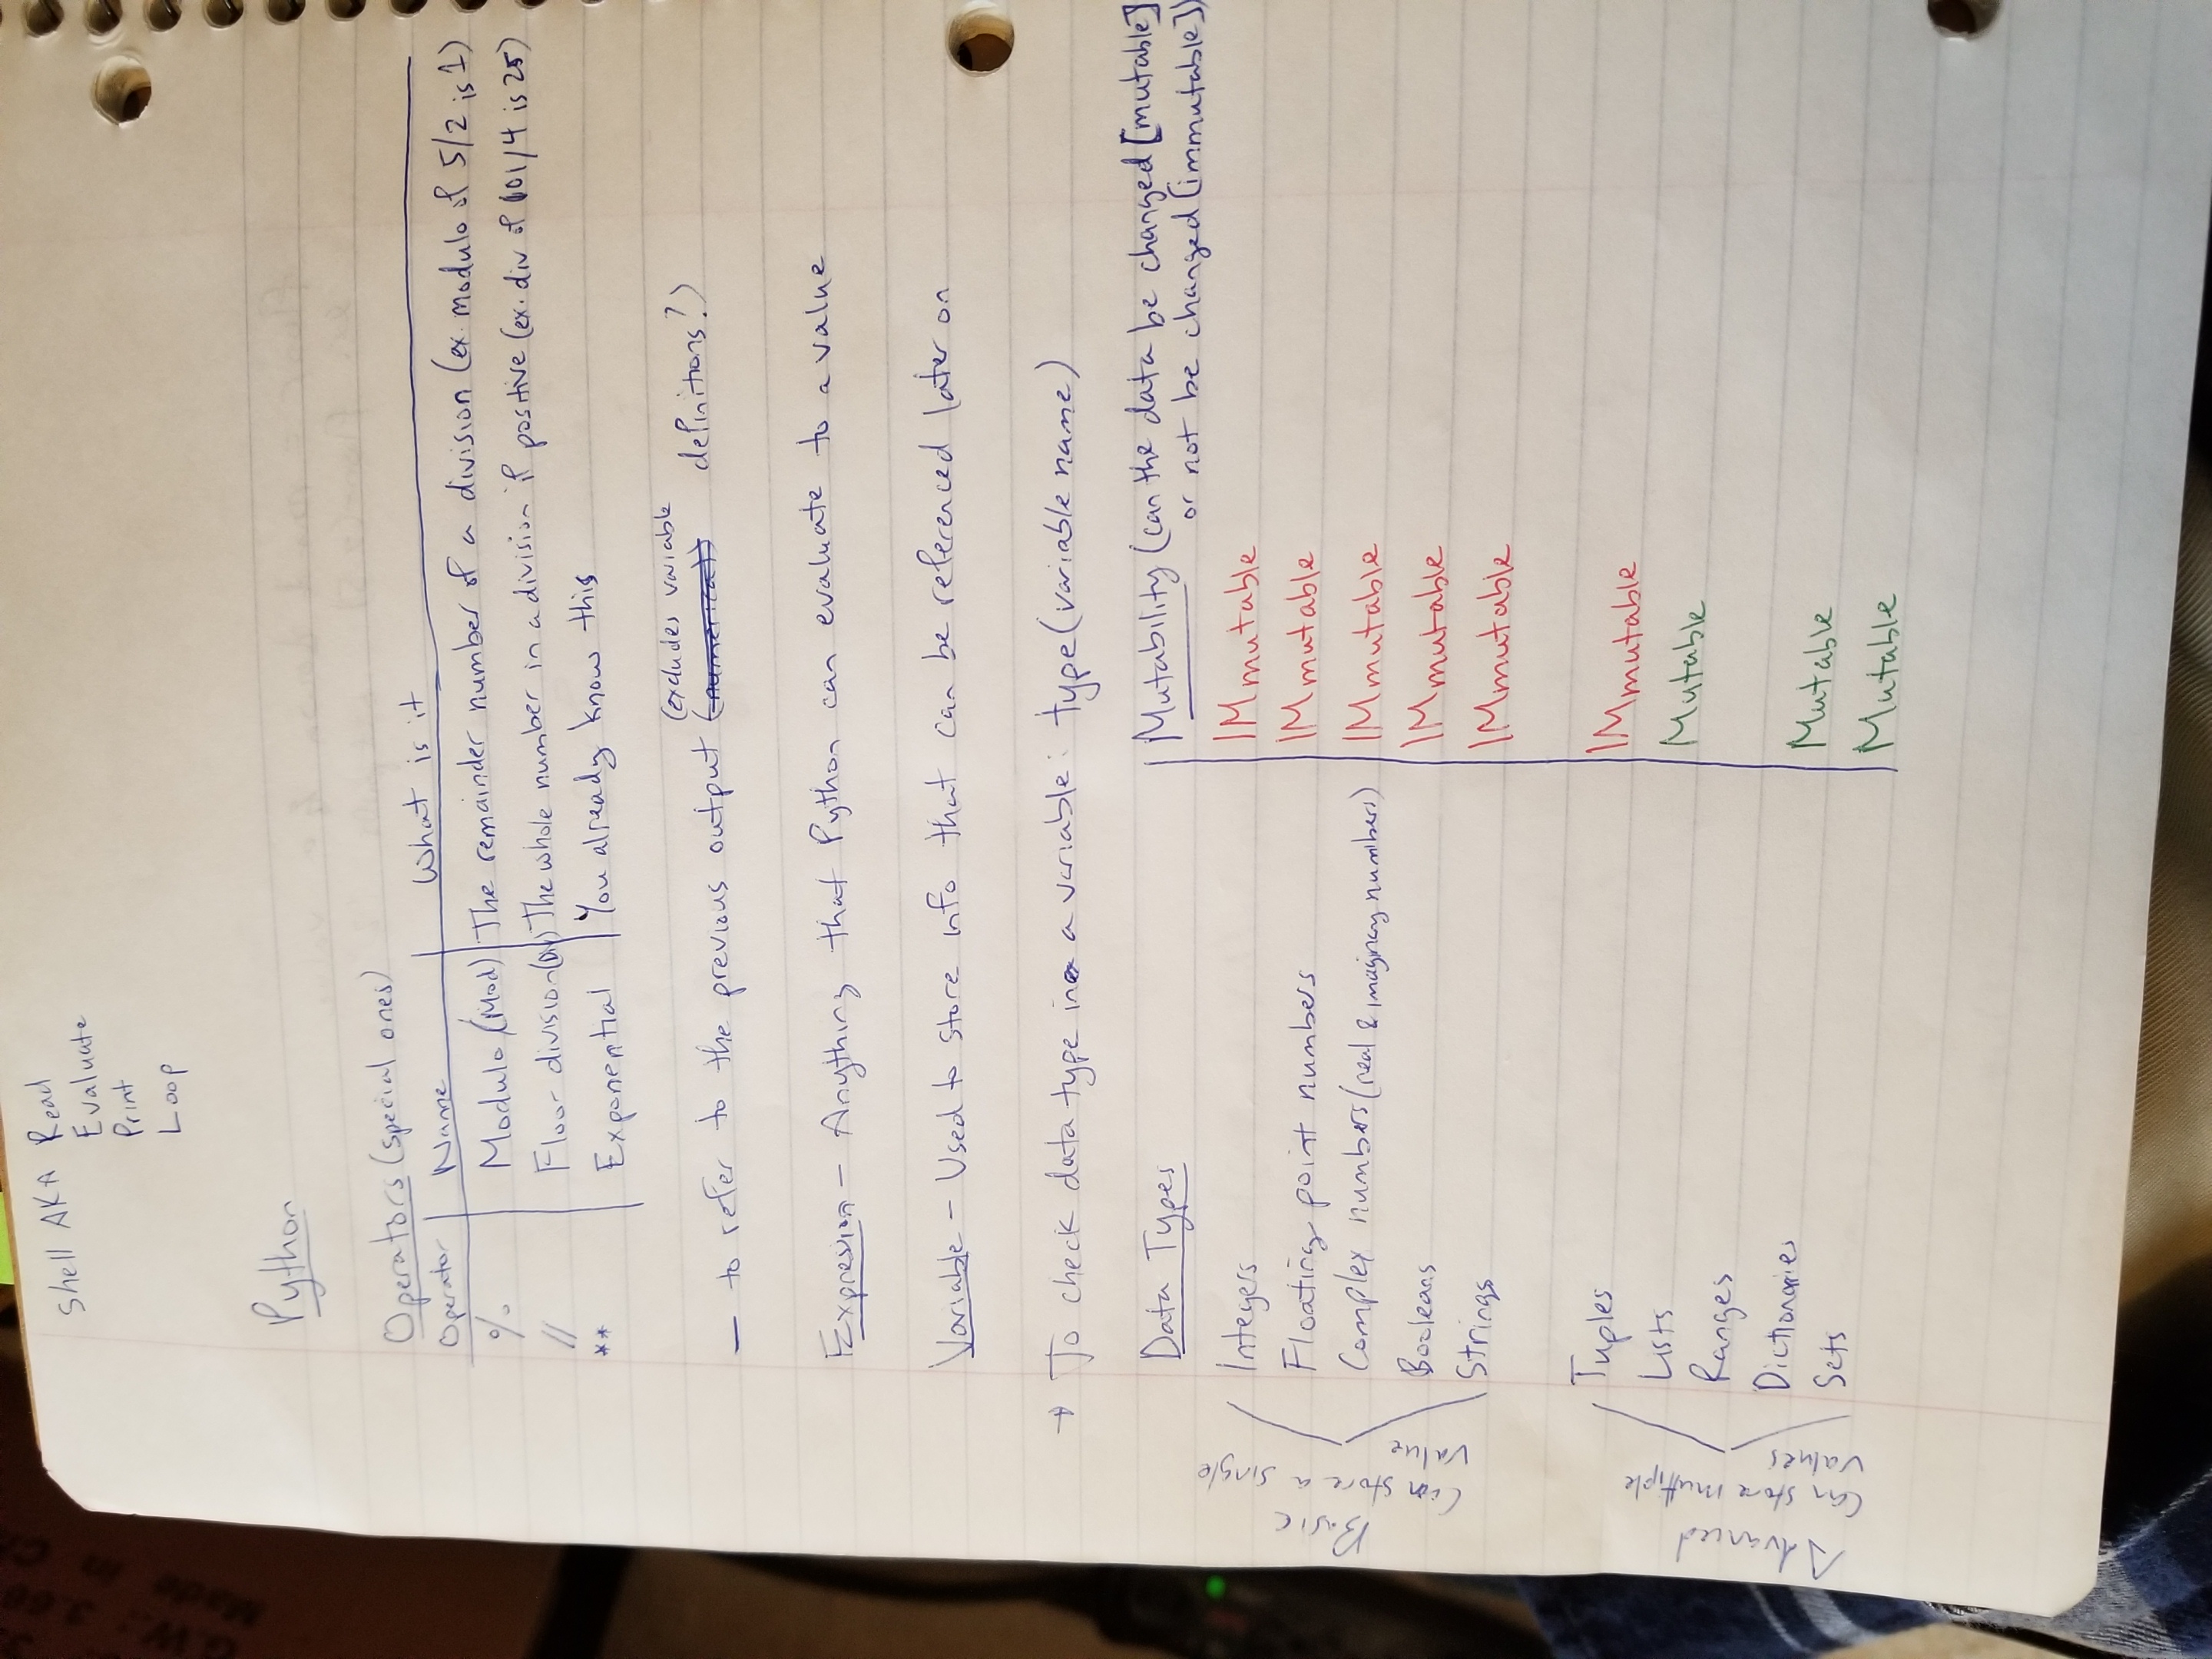 Shell AKA Read
Evaluate
Print
Loop
Python
Operators (special ones)
Operator Name What is it
% Modulo (Mod) The remainder number of a division (ex. modulo of 5/2 is 1)
// Floor division (Div) The whole number in a division if positive (ex. div of 101/4 is 25)
** Exponential You already know this
_ to refer to the previous output (numerical) (excludes variable definitions?)
Expresion - Anything that Python can evaluate to a value
Variable - Used to store info that can be referenced later on
To check data type in a variable: type(variable name)
Data Types Mutability (can the data be changed [mutable]
or not be changed [immutable])
Basic
Can store a single
value
Integers IMmutable
Floating point numbers IMmutable
Complex numbers (real & imaginary numbers) IMmutable
Booleans IMmutable
Strings IMmutable
Advanced
Can store multiple
values
Tuples IMmutable
Lists Mutable
Ranges
Dictionaries Mutable
Sets Mutable